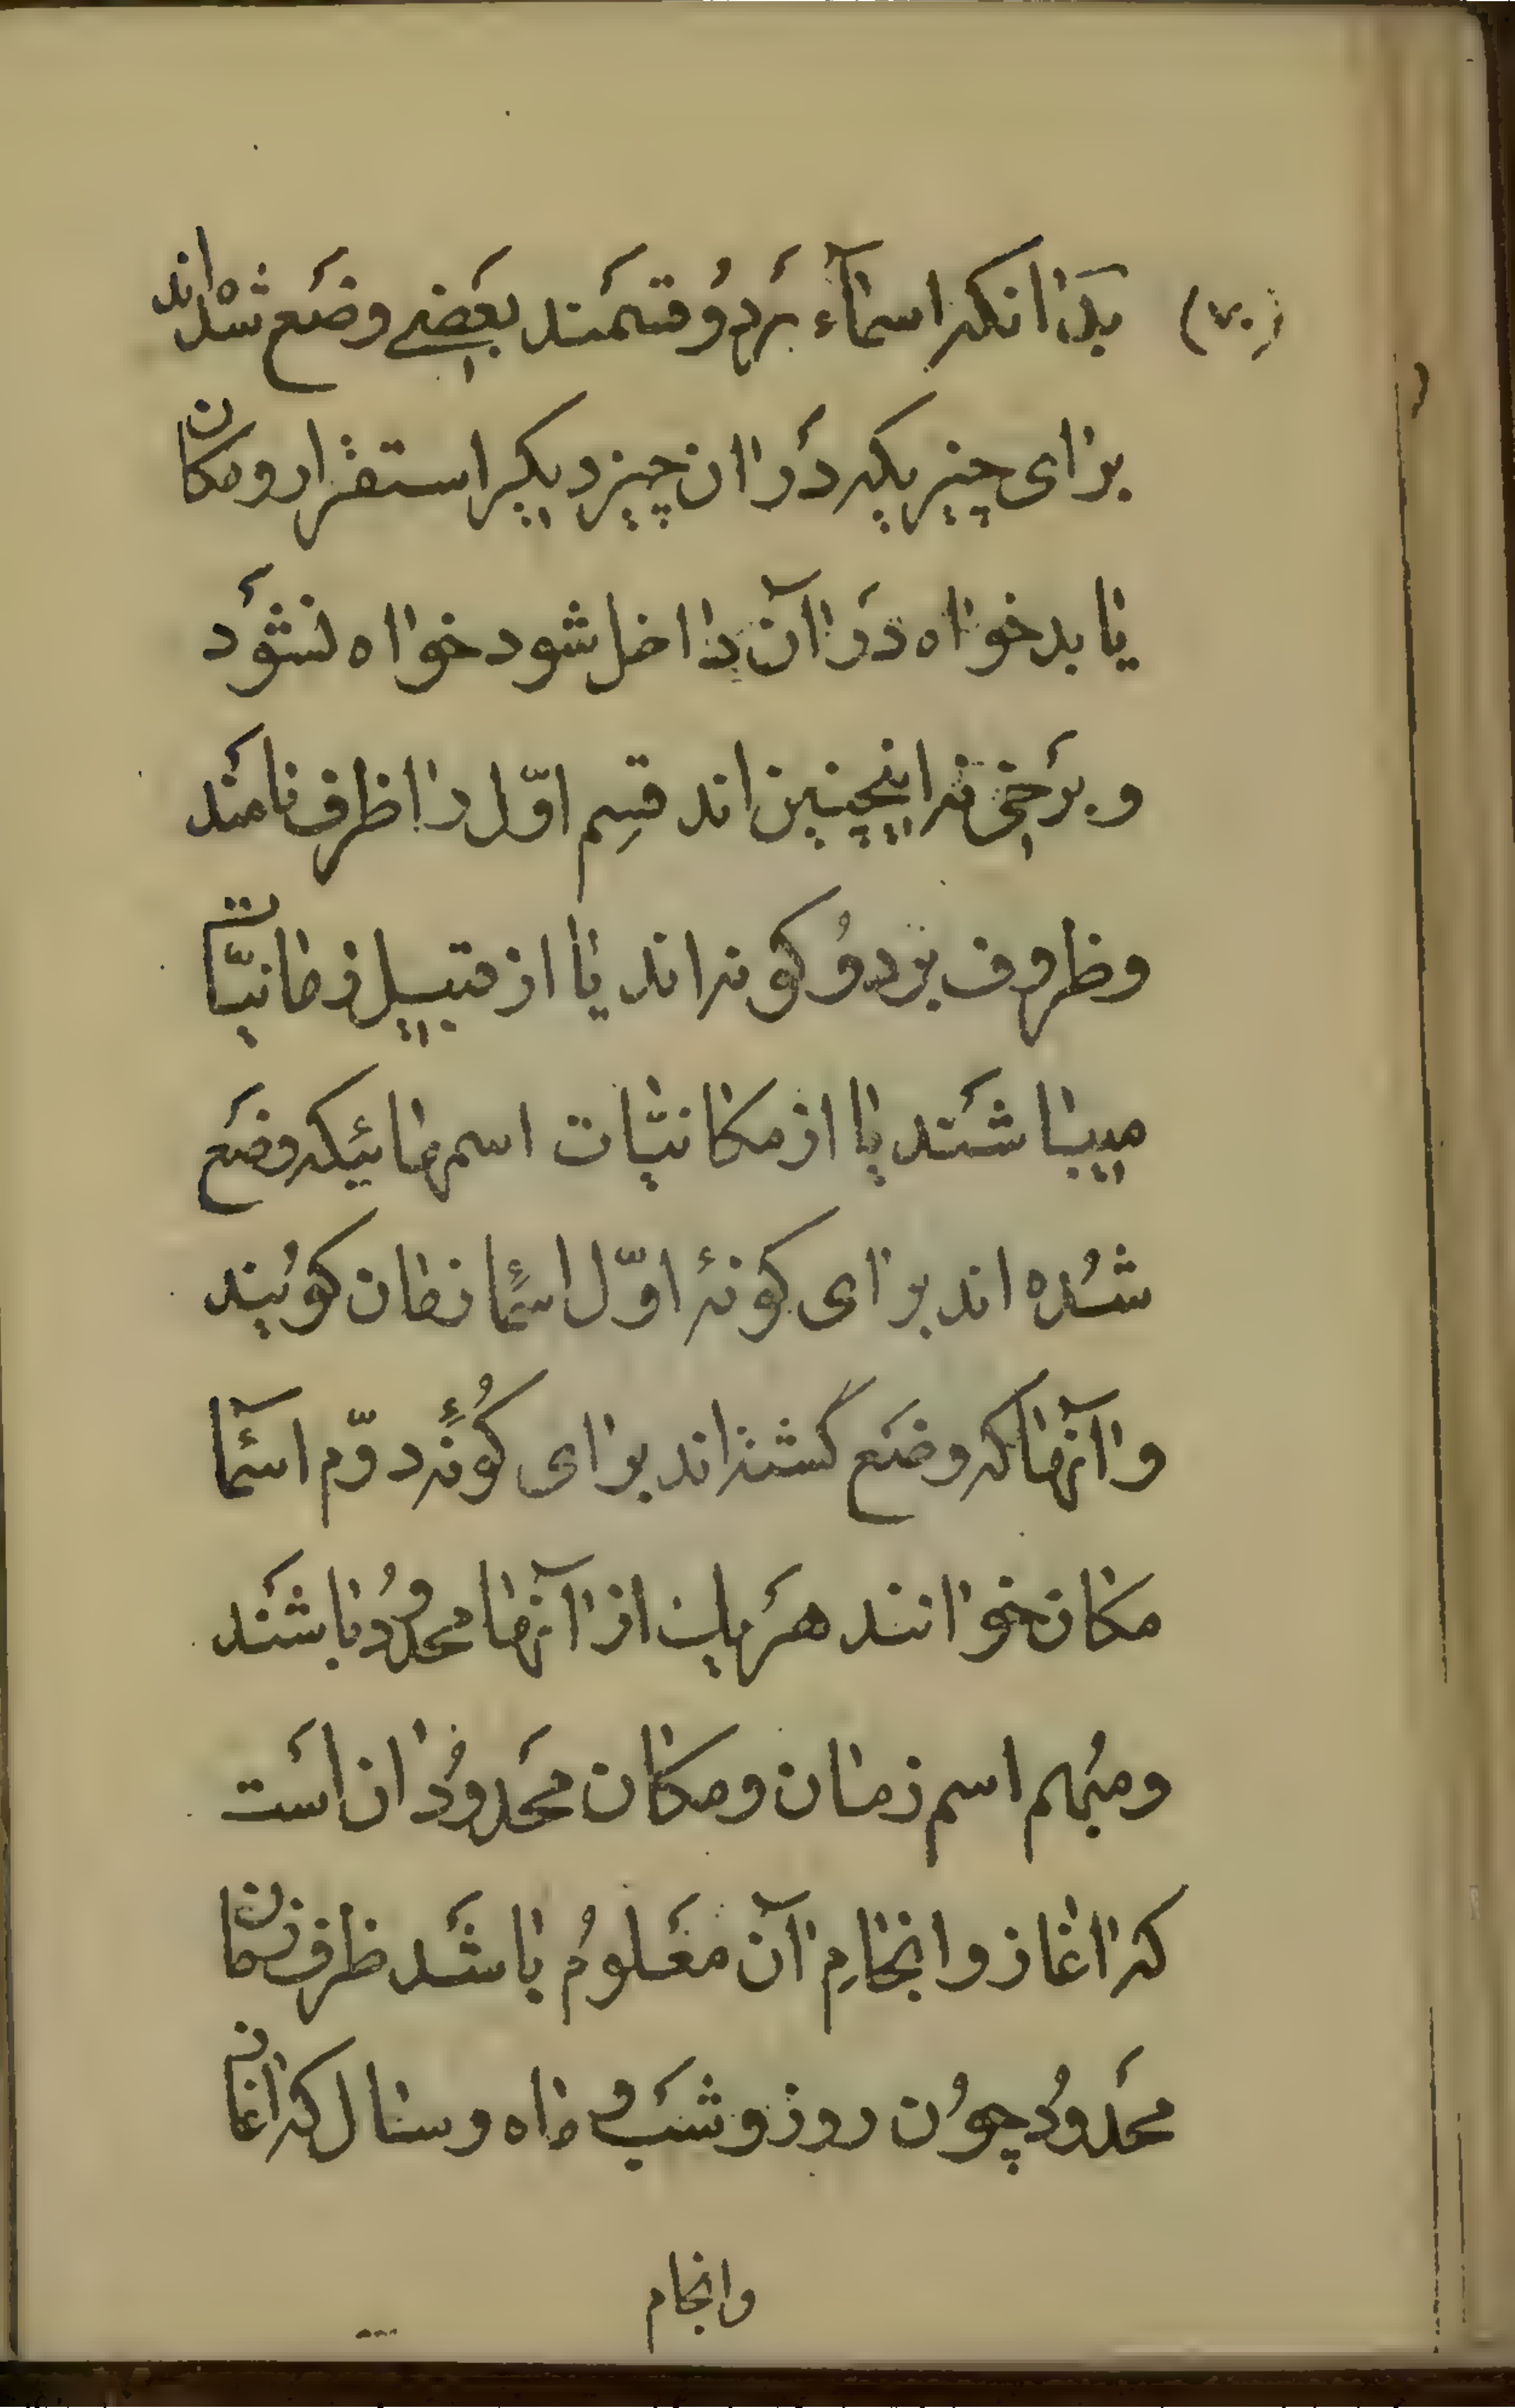 بدانکه اسمآء بر دو قسمند بعضی وضع شده‌اند
برای چیزیکه در ان چیز دیکر استقرار و مکان
یابد خواه در آن داخل شود خواه نشود
و برخی نه اینچنین اند قسم اوّل را ظرف نامند
و ظروف بر دو کونه اند یا از قبیل زمانیّات
میباشند یا از مکانیّات اسمهائیکه وضع
شده اند برای کونۀ اوّل اسماء زمان کویند
و آنها که وضع گشته اند برای کونۀ دوّم اسماء
مکان خوانند هر یک از آنها محدود باشند
و مبهم اسم زمان و مکان محدود ان است
که اغاز و انجامِ آن معلوم باشد ظرف زمان
محدود چون روز و شب و ماه و سال که اغاز
وانجام